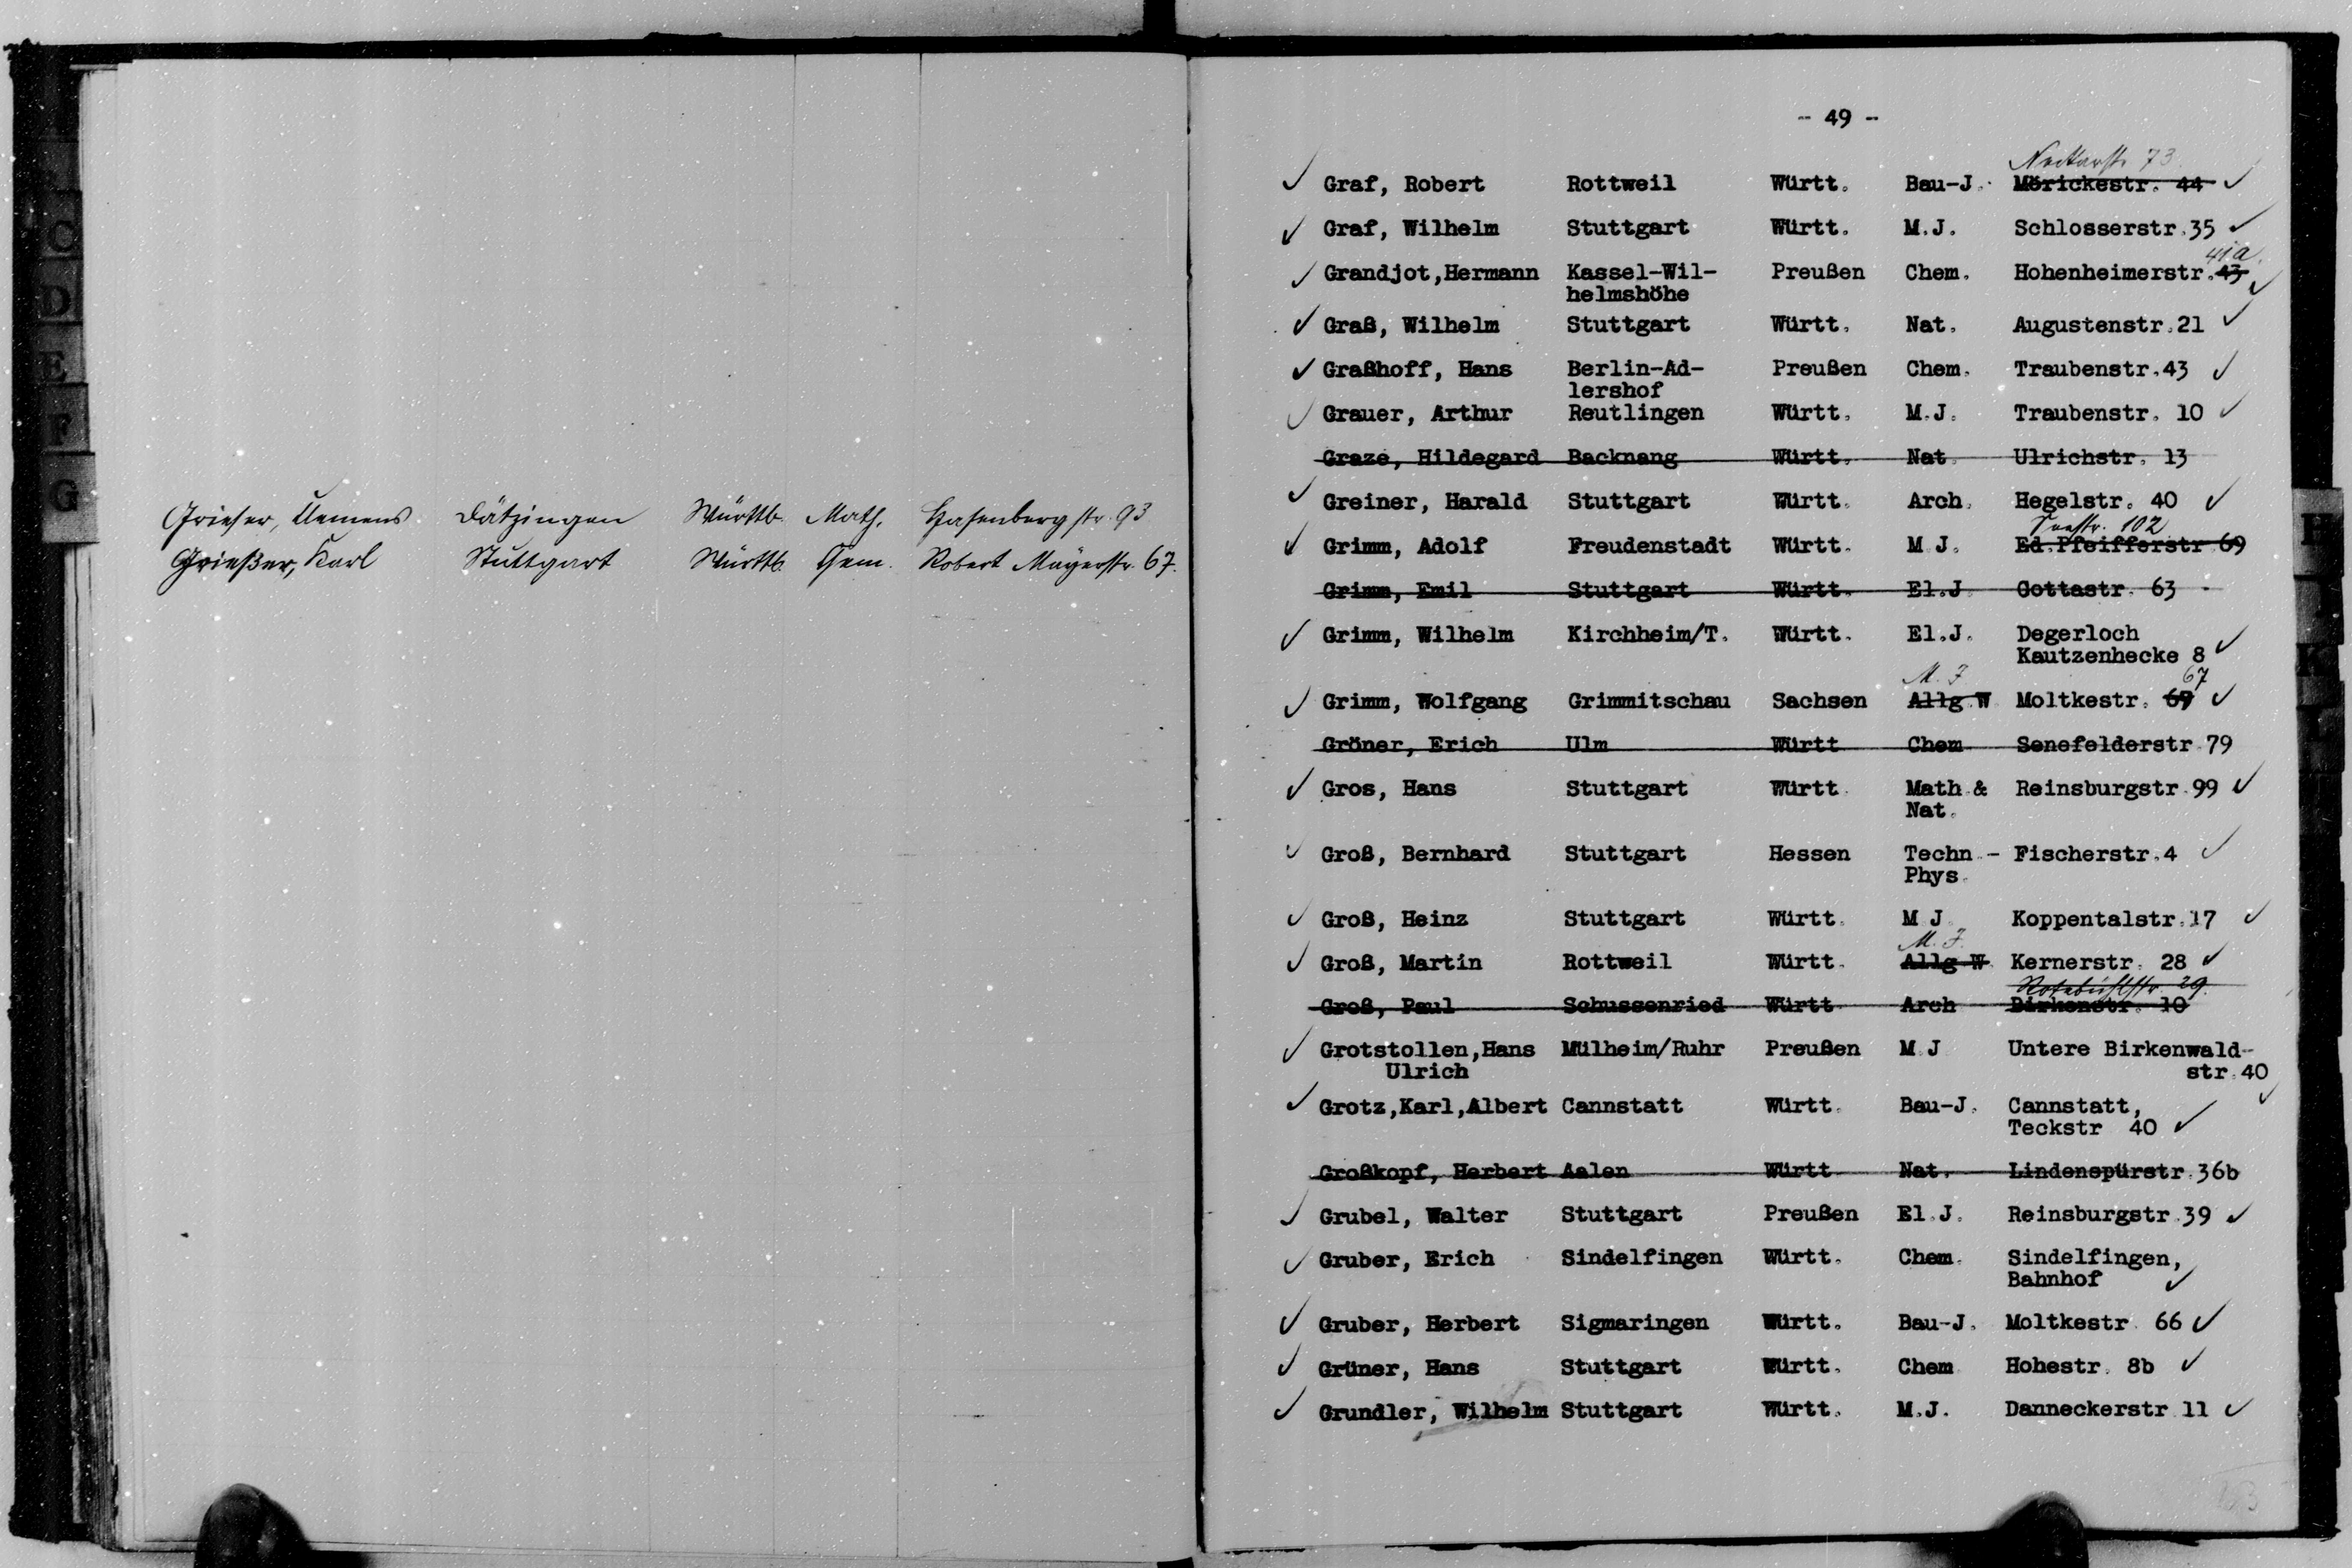 C
D
E
F
G
Grieser, Clemens Dätzingen Württb. Math. Hasenbergstr. 93
Grießer, Karl Stuttgart Württb. Chem. Robert Mayerstr. 67.
- 49 -
Neckarstr. 73
Graf, Robert Rottweil Württ. Bau-J. Mörickestr. 44
Graf, Wilhelm Stuttgart Württ. M.J. Schlosserstr.35
41a.
Grandjot,Hermann Kassel-Wil- Preußen Chem. Hohenheimerstr.43
helmshöhe
Graß, Wilhelm Stuttgart Württ. Nat. Augustenstr.21
Graßhoff, Hans Berlin-Ad- Preußen Chem. Traubenstr.43
lershof
Grauer, Arthur Reutlingen Württ. M.J. Traubenstr. 10
Graze, Hildegard Backnang Württ. Nat. Ulrichstr. 13
Greiner, Harald Stuttgart Württ. Arch. Hegelstr. 40
Seestr. 102
Grimm, Adolf Freudenstadt Württ. M J. Ed.Pfeifferstr 69
Grimm, Emil Stuttgart Württ. El.J Cottastr. 63
Grimm, Wilhelm Kirchheim/T. Württ. El.J. Degerloch
Kautzenhecke 8
M. J 67
Grimm, Wolfgang Grimmitschau Sachsen Allg.W Moltkestr.
Gröner, Erich Ulm Württ Chem Senefelderstr.79
Gros, Hans Stuttgart Württ. Math.& Reinsburgstr.99
Nat.
Groß, Bernhard Stuttgart Hessen Techn.- Fischerstr.4
Phys.
Groß, Heinz Stuttgart Württ. M J Koppentalstr.17
M. J.
Groß, Martin Rottweil Württ. Allg W. Kernerstr. 28
Rotebühlstr. 29.
Groß, Paul Schussenried Württ Arch Birkenstr. 10
Grotstollen,Hans Mülheim/Ruhr Preußen M J Untere Birkenwald-
Ulrich str.40
Grotz,Karl,Albert Cannstatt Württ. Bau-J. Cannstatt,
Teckstr 40
Großkopf, Herbert Aalen Württ Nat. Lindenspürstr.36b
Grubel, Walter Stuttgart Preußen El.J. Reinsburgstr.39
Gruber, Erich Sindelfingen Württ. Chem. Sindelfingen,
Bahnhof
Gruber, Herbert Sigmaringen Württ. Bau-J. Moltkestr. 66
Grüner, Hans Stuttgart Württ. Chem Hohestr. 8b
Grundler, Wilhelm Stuttgart Württ. M.J. Danneckerstr.11
H
I
K
L